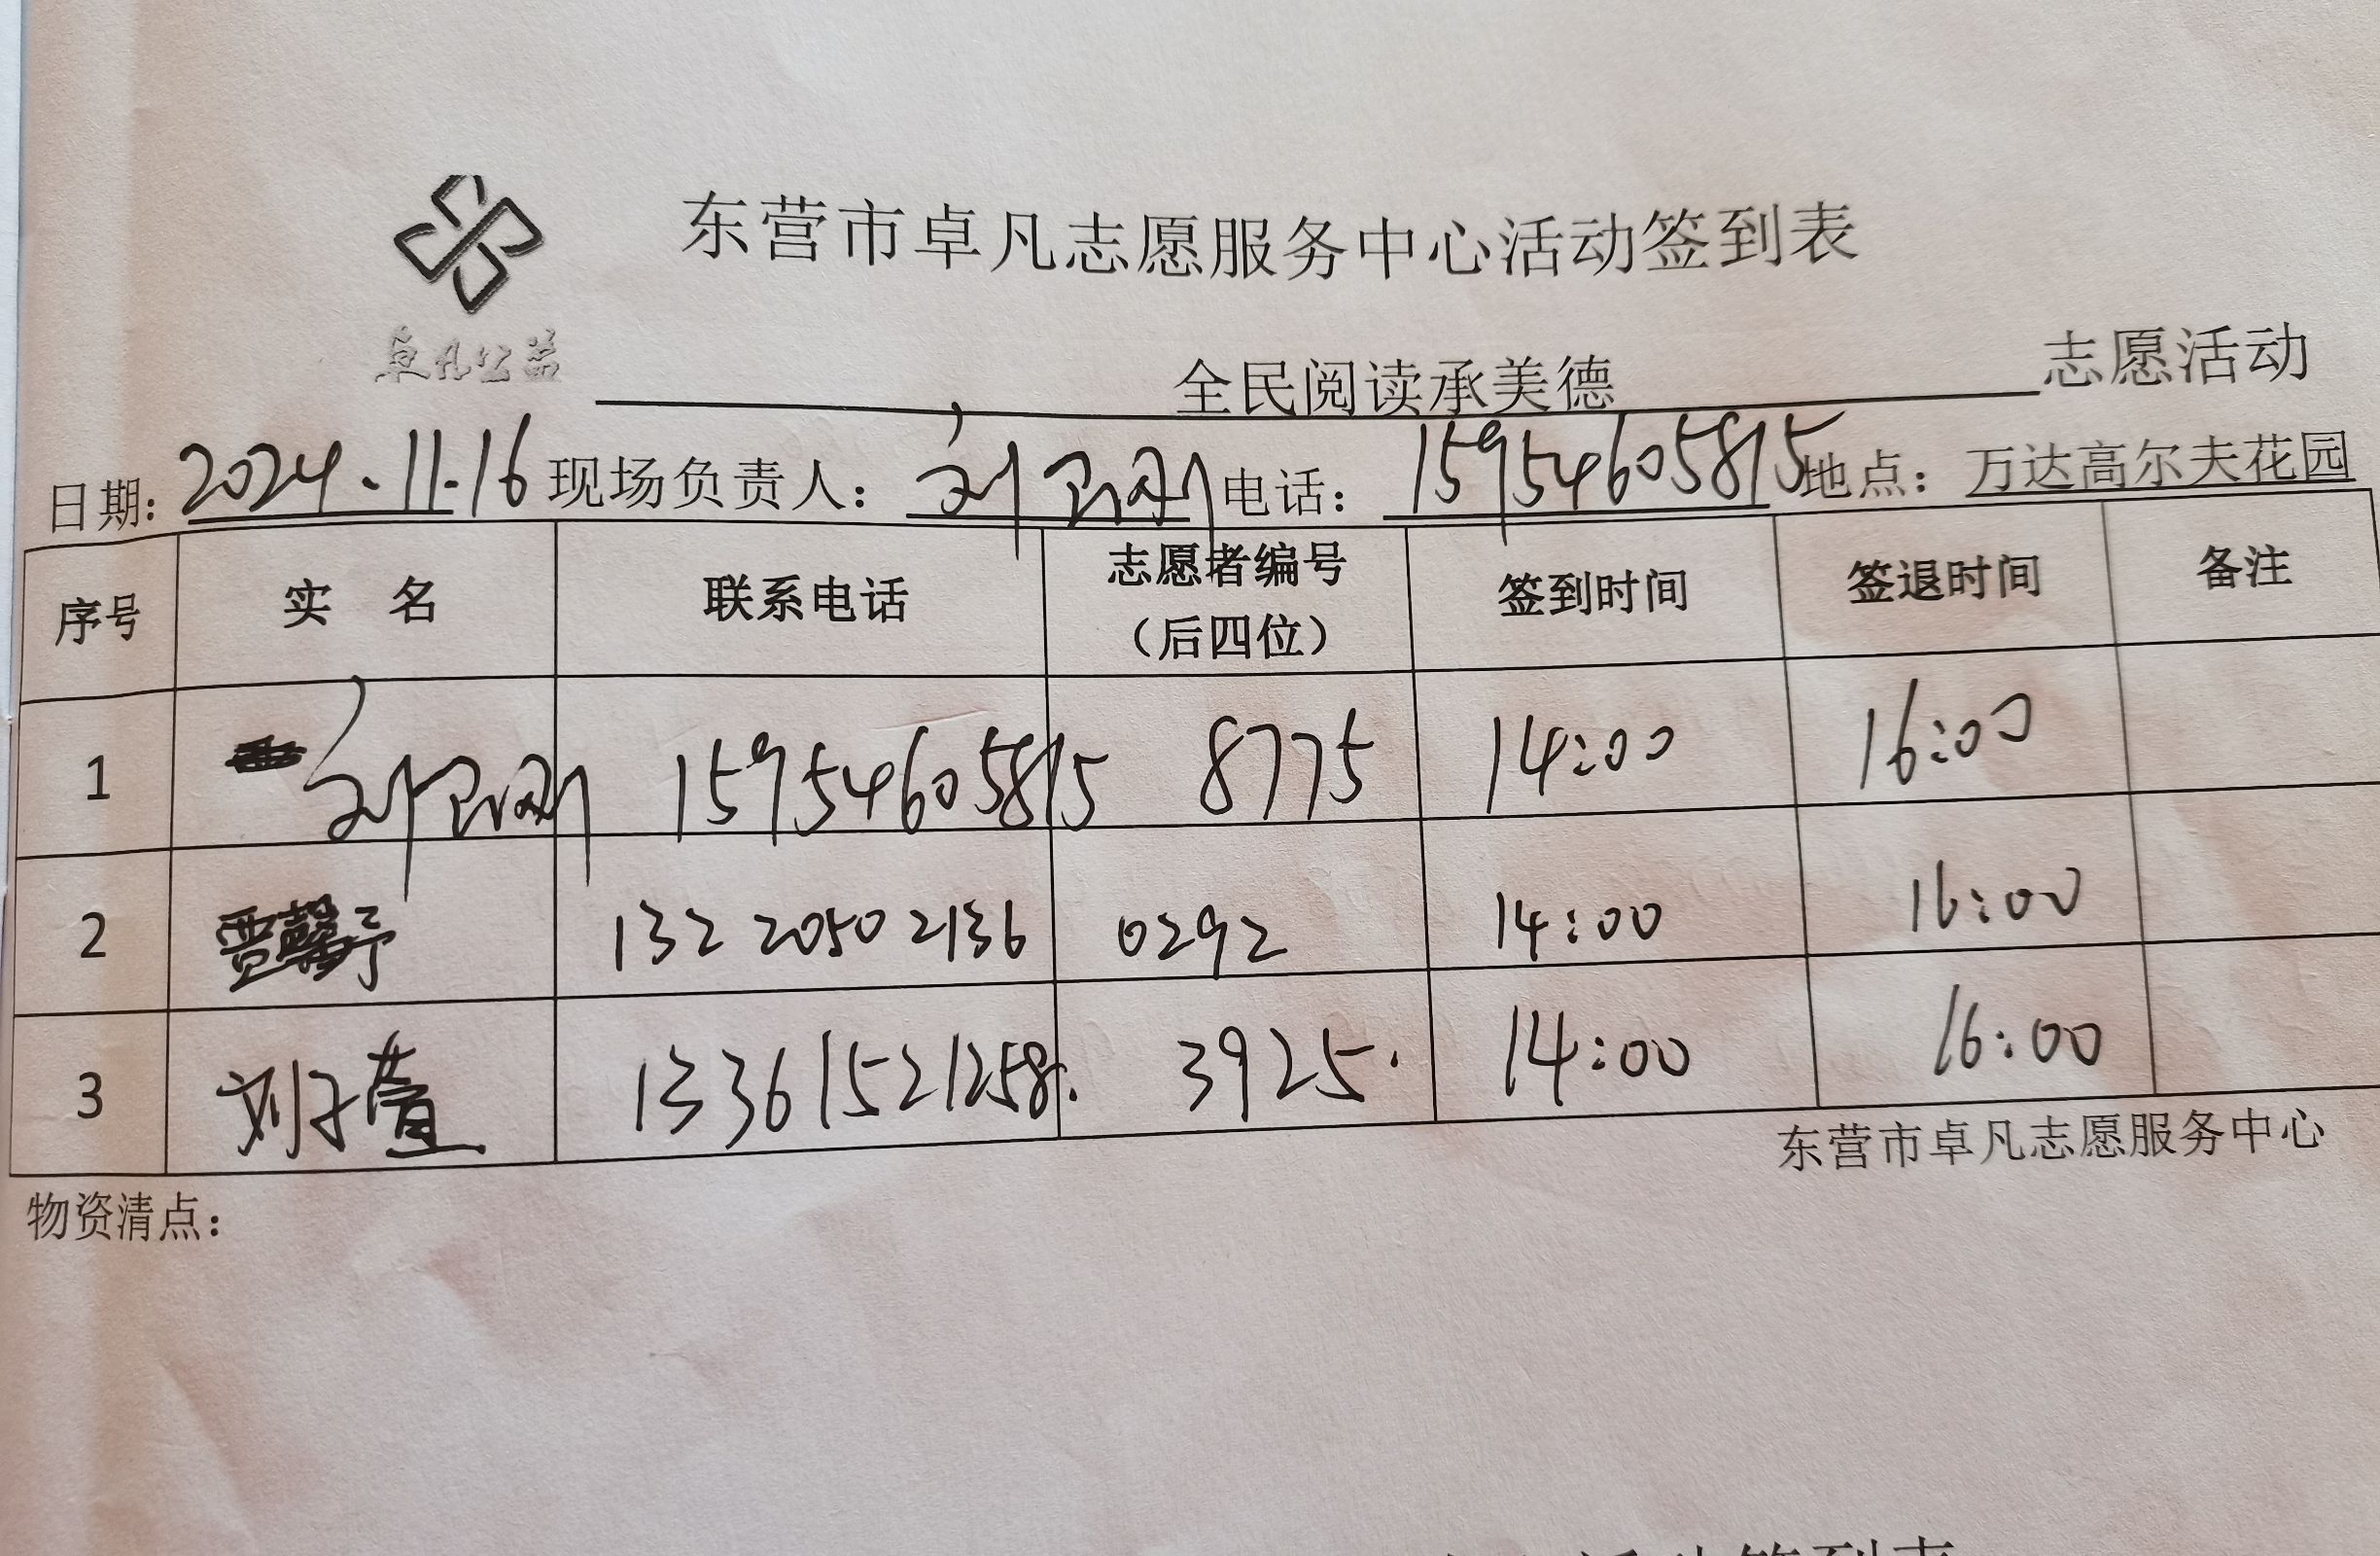 东营市卓凡志愿服务中心活动签到表
卓凡公益
全民阅读承美德 志愿活动
日期: 2024.11.16 现场负责人: 刘 电话: 15954605815 地点: 万达高尔夫花园
序号 实 名 联系电话 志愿者编号（后四位） 签到时间 签退时间 备注
1 刘 15954605815 8775 14:00 16:00
2 贾馨予 132 2050 2136 0292 14:00 16:00
3 刘子萱 13361521258. 3925. 14:00 16:00
东营市卓凡志愿服务中心
物资清点: